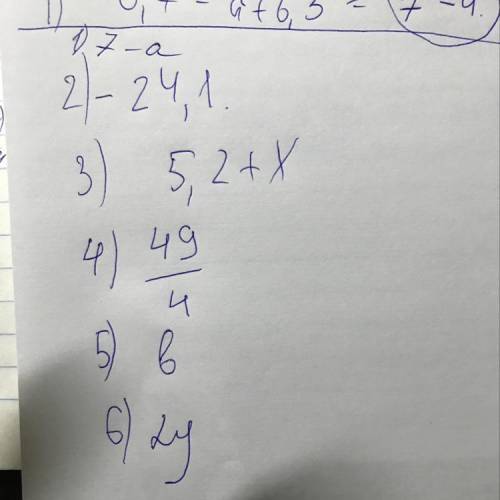 1) 0,7 - a + 6,3 = 7 - a.
1) 7 - a
2) - 24,1.
3) 5,2 + x
4) 49/4
5) в
6) 2y